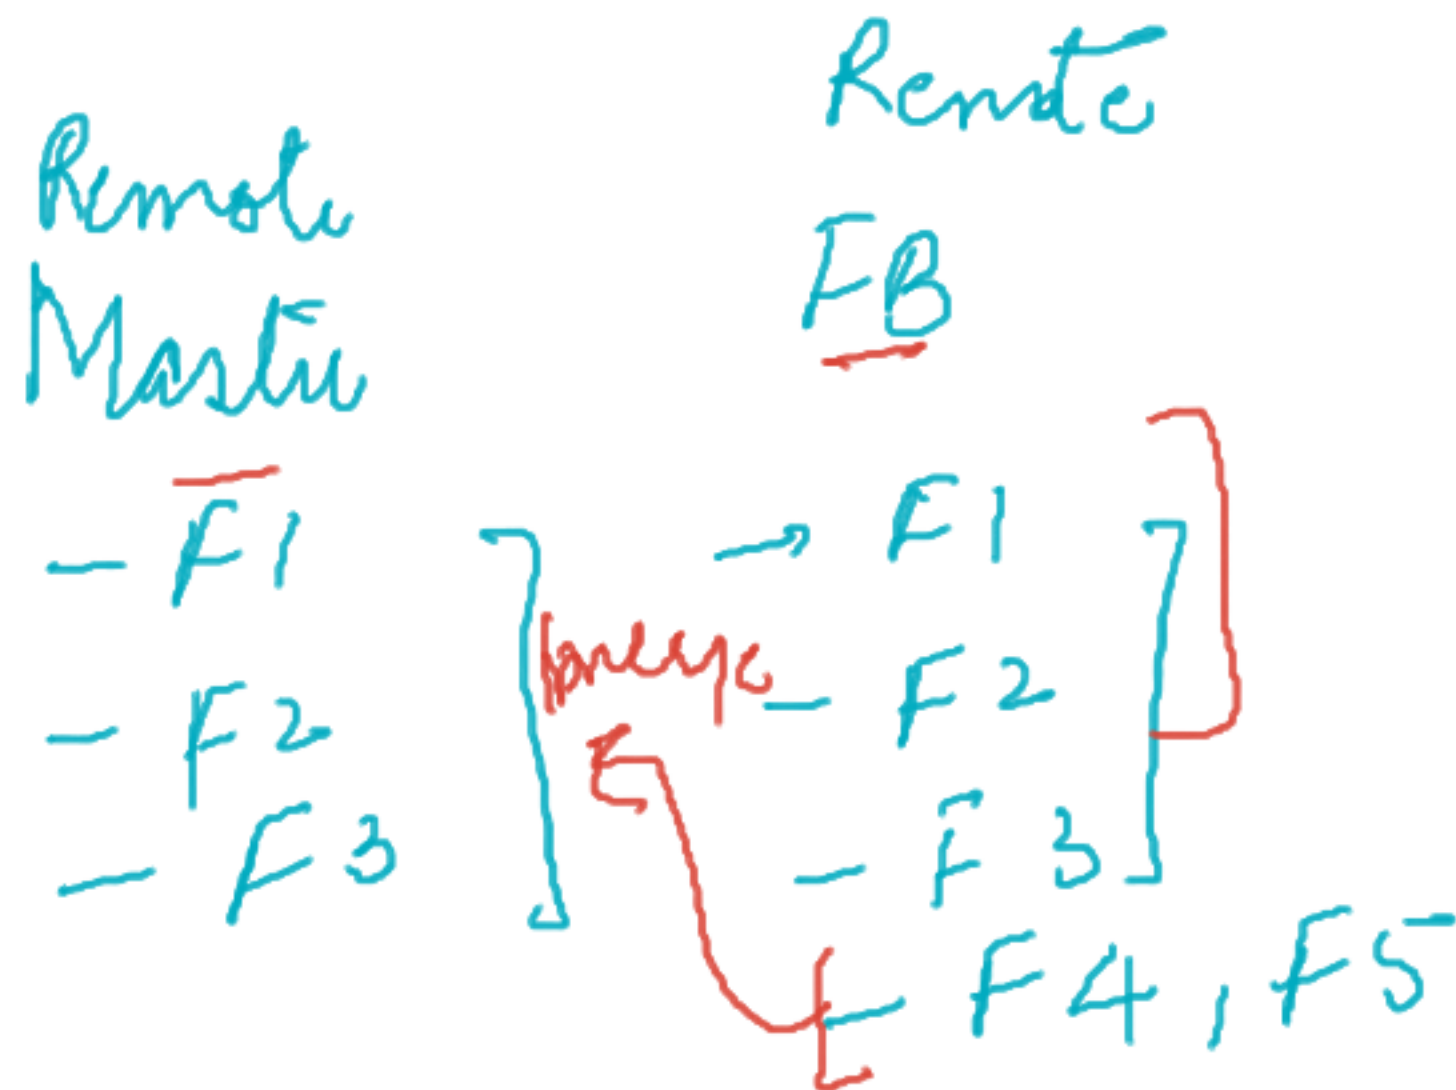 Remote
Master
- F1
- F2
- F3
Remote
FB
→ F1
- F2
- F3
- F4, F5